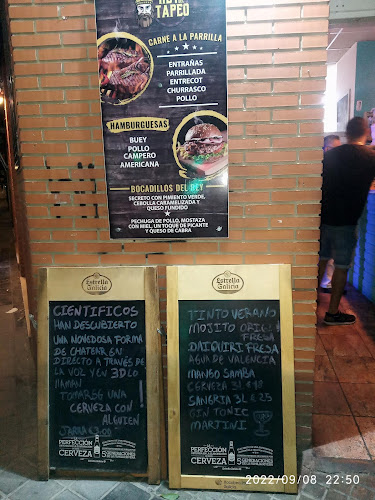 TAPEO
CARNE A LA PARRILLA
ENTRAÑAS
PARRILLADA
ENTRECOT
CHURRASCO
POLLO
HAMBURGUESAS
BUEY
POLLO
CAMPERO
AMERICANA
BOCADILLOS DEL REY
SECRETO CON PIMIENTO VERDE,
CEBOLLA CARAMELIZADA Y
QUESO FUNDIDO
PECHUGA DE POLLO, MOSTAZA
CON MIEL, UN TOQUE DE PICANTE
Y QUESO DE CABRA
Estrella
Galicia
CIENTIFICOS
HAN DESCUBIERTO
UNA NOVEDOSA FORMA
DE CHATEAR EN
DIRECTO A TRAVÉS DE
LA VOZ Y EN 3D LO
LLAMAN
TOMARSE UNA
CERVEZA CON
ALGUIEN!
JARRA
PERFECCIÓN
CERVEZA
5
GENERACIONES
Estrella
Galicia
TINTO VERANO
MOJITO ORIG.
FRESA
DAIQUIRI FRESA
AGUA DE VALENCIA
MANGO SAMBA
CERVEZA
SANGRIA 3L € 25
GIN TONIC
MARTINI
PERFECCIÓN
CERVEZA
5
GENERACIONES
2022/09/08 22:50